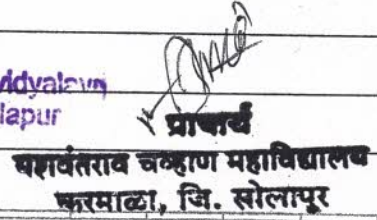 vidyalaya
lapur
प्राचार्य
यशवंतराव चव्हाण महाविद्यालय
करमाळा, जि. सोलापूर